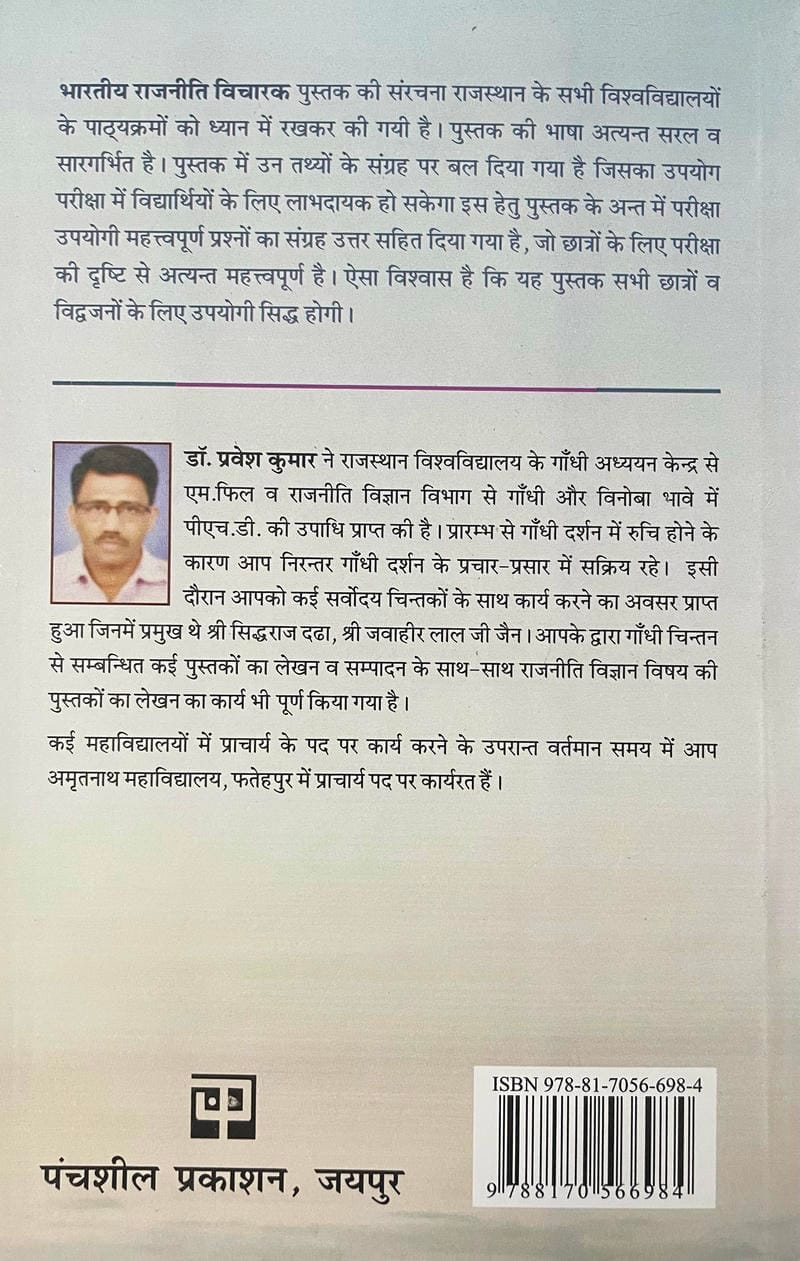 भारतीय राजनीति विचारक पुस्तक की संरचना राजस्थान के सभी विश्वविद्यालयों
के पाठ्यक्रमों को ध्यान में रखकर की गयी है। पुस्तक की भाषा अत्यन्त सरल व
सारगर्भित है। पुस्तक में उन तथ्यों के संग्रह पर बल दिया गया है जिसका उपयोग
परीक्षा में विद्यार्थियों के लिए लाभदायक हो सकेगा इस हेतु पुस्तक के अन्त में परीक्षा
उपयोगी महत्त्वपूर्ण प्रश्नों का संग्रह उत्तर सहित दिया गया है, जो छात्रों के लिए परीक्षा
की दृष्टि से अत्यन्त महत्त्वपूर्ण है। ऐसा विश्वास है कि यह पुस्तक सभी छात्रों व
विद्वजनों के लिए उपयोगी सिद्ध होगी।
डॉ. प्रवेश कुमार ने राजस्थान विश्वविद्यालय के गाँधी अध्ययन केन्द्र से
एम.फिल व राजनीति विज्ञान विभाग से गाँधी और विनोबा भावे में
पीएच.डी. की उपाधि प्राप्त की है। प्रारम्भ से गाँधी दर्शन में रुचि होने के
कारण आप निरन्तर गाँधी दर्शन के प्रचार-प्रसार में सक्रिय रहे। इसी
दौरान आपको कई सर्वोदय चिन्तकों के साथ कार्य करने का अवसर प्राप्त
हुआ जिनमें प्रमुख थे श्री सिद्धराज दढा, श्री जवाहीर लाल जी जैन। आपके द्वारा गाँधी चिन्तन
से सम्बन्धित कई पुस्तकों का लेखन व सम्पादन के साथ-साथ राजनीति विज्ञान विषय की
पुस्तकों का लेखन का कार्य भी पूर्ण किया गया है।
कई महाविद्यालयों में प्राचार्य के पद पर कार्य करने के उपरान्त वर्तमान समय में आप
अमृतनाथ महाविद्यालय, फतेहपुर में प्राचार्य पद पर कार्यरत हैं।
पंचशील प्रकाशन, जयपुर
ISBN 978-81-7056-698-4
9 788170 566984